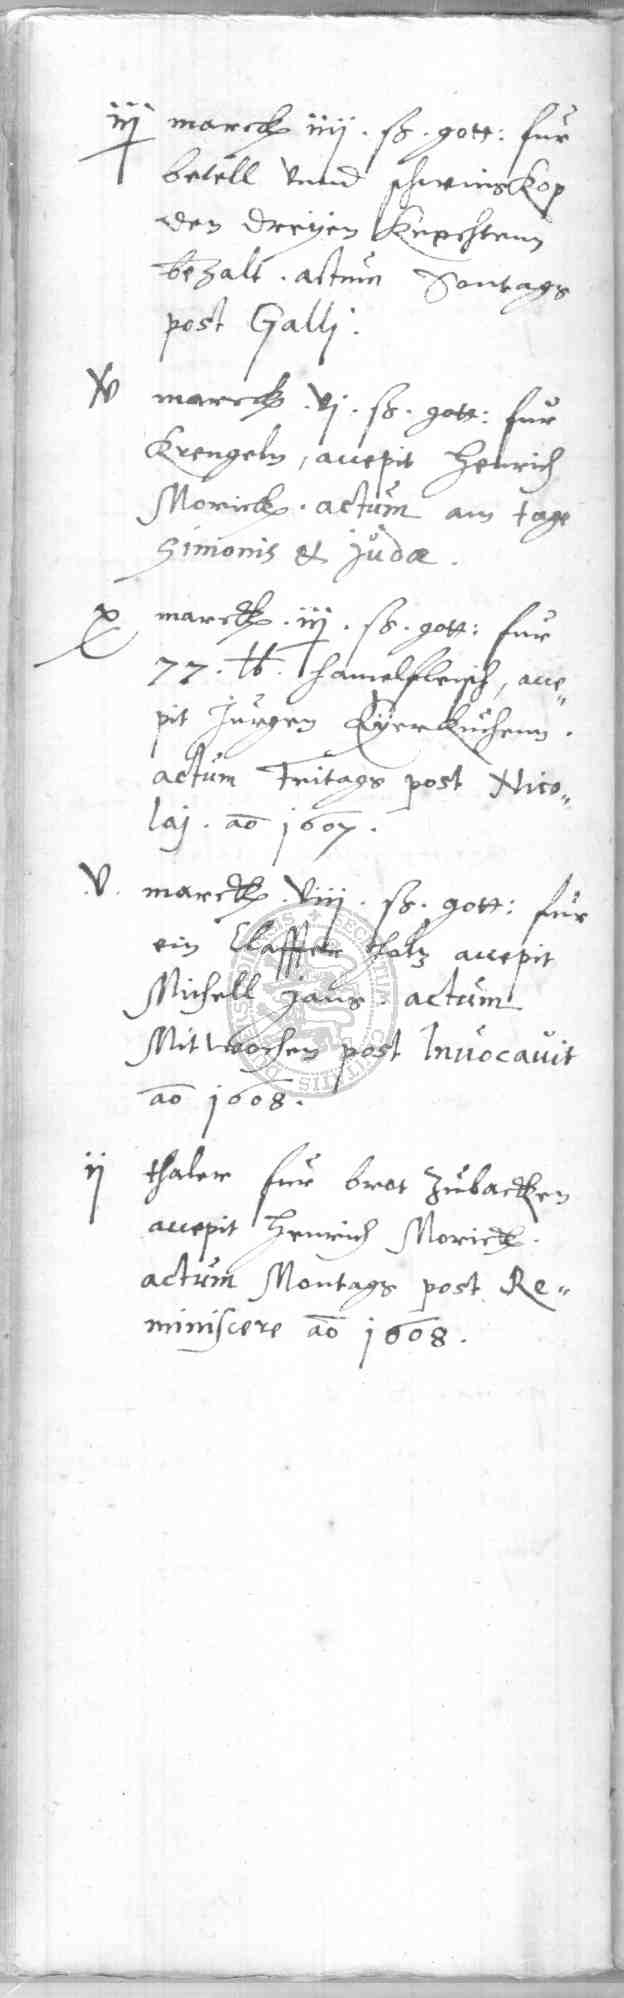 iij marck iiij. ß. gott: für
betell vnnd schweinskop
den dreÿen Knechtenn
bezalt. actum Sontags
post Galli.
xv marck. vj. ß. gott: für
Krengeln, accepit Henrich
Morick. actum am tage
Simonis et Judæ.
x marck. iij. ß. gott: für
77. lb. hamelfleisch, acce„
pit Jürgen Eÿerkuchenn.
actum Fritags post Nico„
laj. ao 1607.
.V. marck. viij. ß. gott: für
ein Claffter holtz accepit
Michell Jans. actum
Mitwochen post Invocavit
ao 1608.
ij thaler für brot zubacken
accepit Henrich Morick.
actum Montags post Re„
miniscere ao 1608.